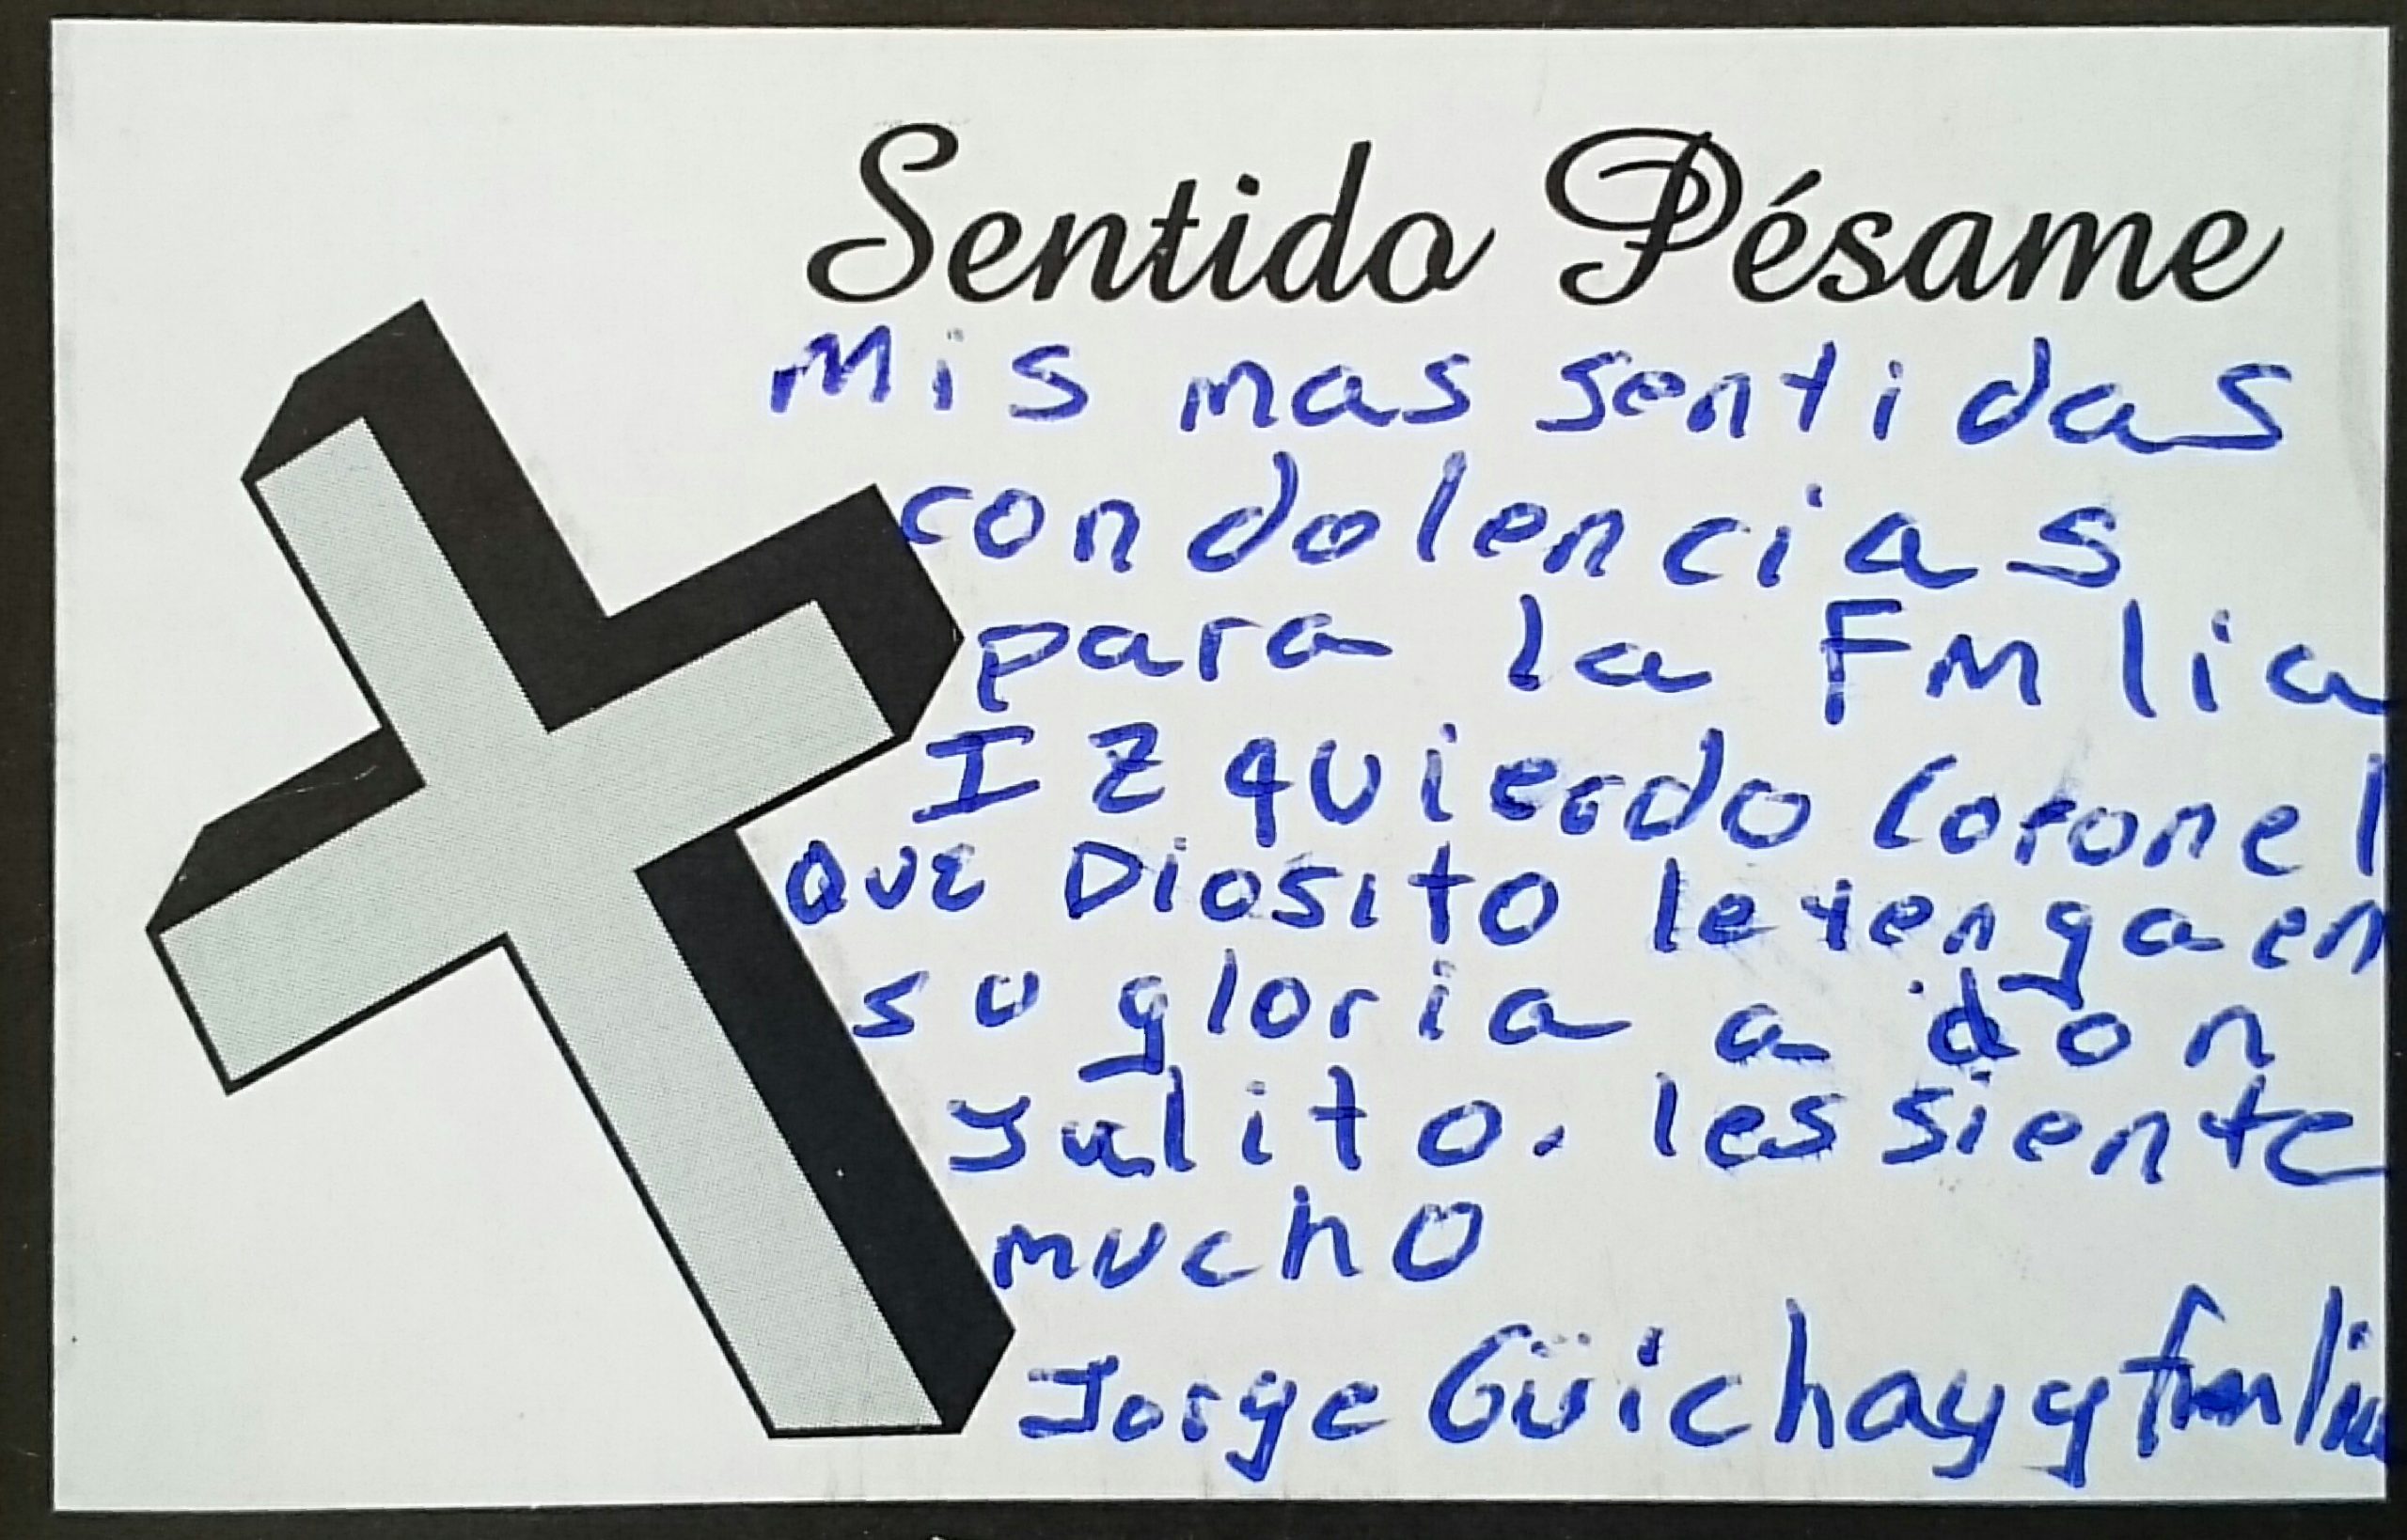 Sentido Pésame
Mis mas sentidas
condolencias
para la Fmlia
Izquierdo Coronel
Que Diosito le tenga en
su gloria a don
Julito. les siente
mucho
Jorge Güichay y fmlia